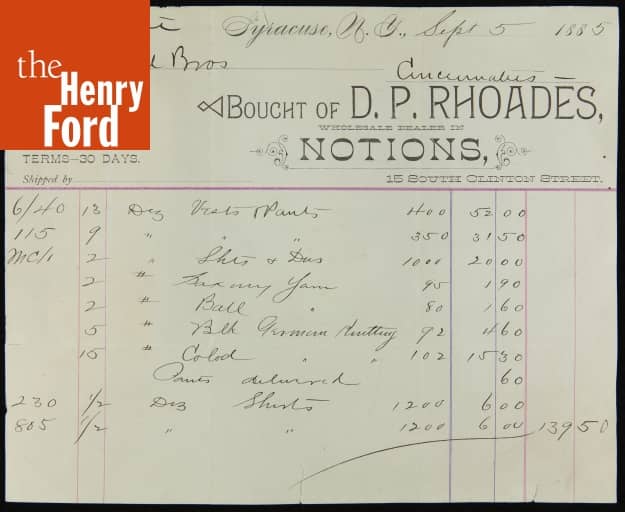 the
Henry
Ford
Syracuse, N. Y., Sept 5 1885
Bros
Cincinnatus
BOUGHT OF D. P. RHOADES,
WHOLESALE DEALER IN
NOTIONS,
TERMS-30 DAYS.
Shipped by
15 SOUTH CLINTON STREET.
6/40 13 Doz Vests & Pants 400 52 00
115 9 " " " 350 31 50
2 " Shts & Drs 1000 20 00
2 # Saxony Yarn 95 1 90
2 # Ball " 80 1 60
5 # Blk German Knitting 92 4 60
15 # Colod " " 102 15 30
Pants delivered 60
230 1/2 Doz Shirts 1200 6 00
805 1/2 " " 1200 6 00 139 50